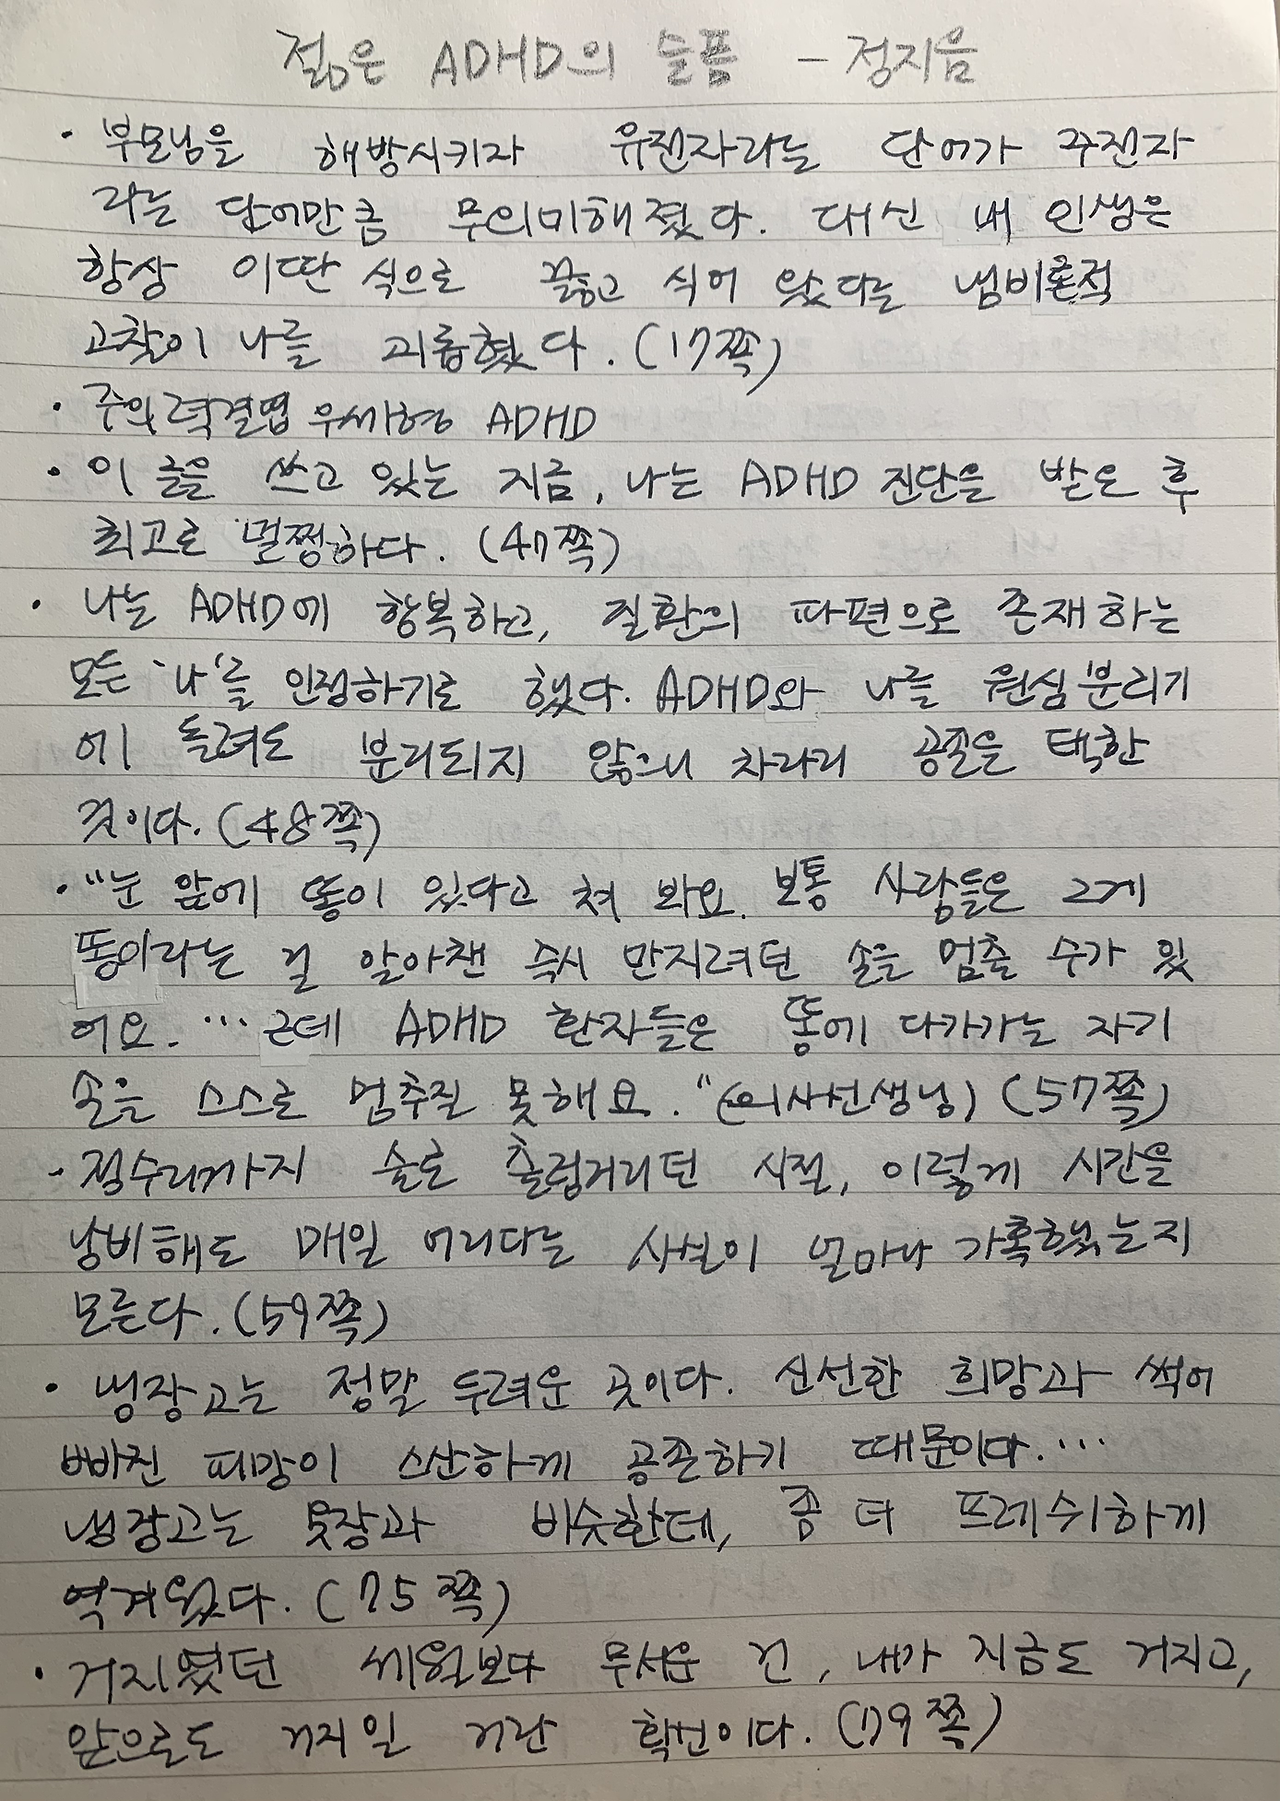 젊은 ADHD의 슬픔 - 정지음
· 부모님을 해방시키자 유전자라는 단어가 주전자
라는 단어만큼 무의미해졌다. 대신 내 인생은
항상 이딴 식으로 끓고 식어 왔다는 냄비론적
고찰이 나를 괴롭혔다. (17쪽)
· 주의력결핍 우세형 ADHD
· 이 글을 쓰고 있는 지금, 나는 ADHD 진단을 받은 후
최고로 멀쩡하다. (47쪽)
· 나는 ADHD에 항복하고, 질환의 파편으로 존재하는
모든 '나'를 인정하기로 했다. ADHD와 나를 원심분리기
에 돌려도 분리되지 않으니 차라리 공존을 택한
것이다. (48쪽)
· "눈 앞에 똥이 있다고 쳐 봐요. 보통 사람들은 그게
똥이라는 걸 알아챈 즉시 만지려던 손을 멈출 수가 있
어요. … 근데 ADHD 환자들은 똥에 다가가는 자기
손을 스스로 멈추질 못해요." (의사선생님) (57쪽)
- 정수리까지 술로 출렁거리던 시절, 이렇게 시간을
낭비해도 매일 어리다는 사실이 얼마나 가혹했는지
모른다. (59쪽)
· 냉장고는 정말 두려운 곳이다. 신선한 희망과 썩어
빠진 패망이 스산하게 공존하기 때문이다. …
냉장고는 옷장과 비슷한데, 좀 더 프레쉬하게
역겨웠다. (75쪽)
· 거지였던 세월보다 무서운 건, 내가 지금도 거지고,
앞으로도 거지일 거란 확신이다. (79쪽)